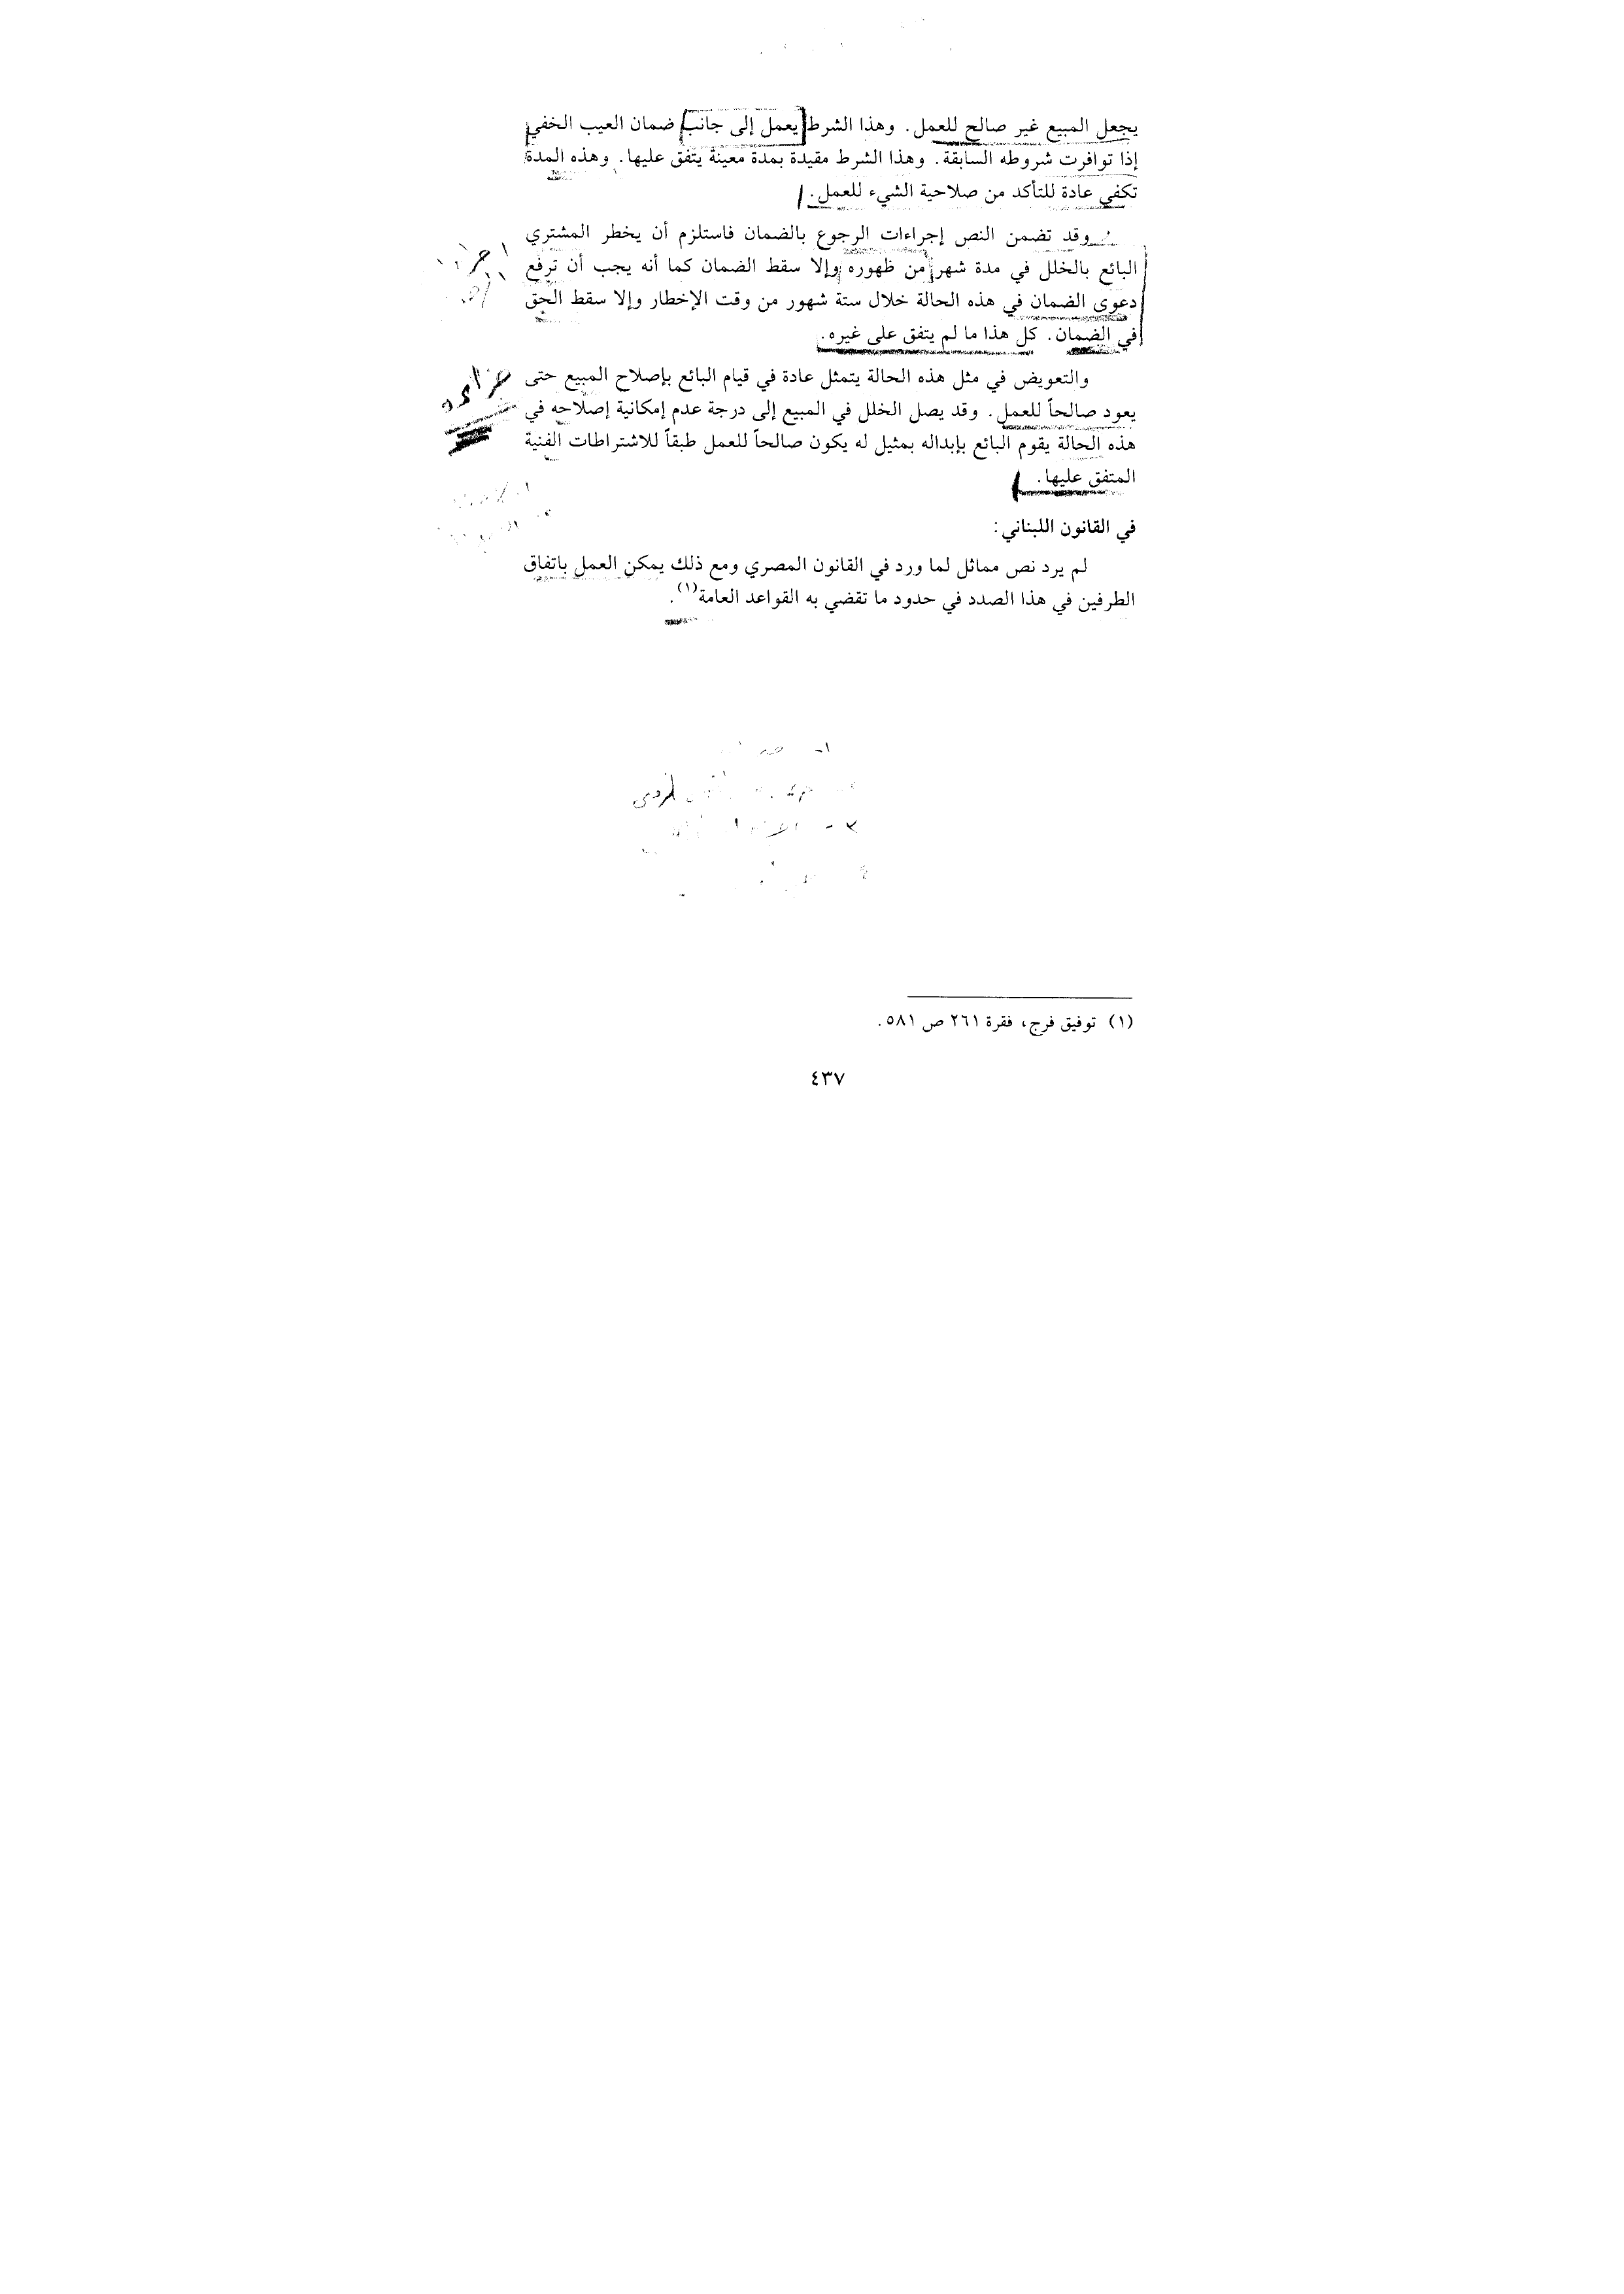 يجعل المبيع غير صالح للعمل. وهذا الشرط يعمل إلى جانب ضمان العيب الخفي
إذا توافرت شروطه السابقة. وهذا الشرط مقيدة بمدة معينة يتفق عليها. وهذه المدة
تكفي عادة للتأكد من صلاحية الشيء للعمل.
وقد تضمن النص إجراءات الرجوع بالضمان فاستلزم أن يخطر المشتري
البائع بالخلل في مدة شهر من ظهوره وإلا سقط الضمان كما أنه يجب أن ترفع
دعوى الضمان في هذه الحالة خلال ستة شهور من وقت الإخطار وإلا سقط الحق
في الضمان. كل هذا ما لم يتفق على غيره.
والتعويض في مثل هذه الحالة يتمثل عادة في قيام البائع بإصلاح المبيع حتى
يعود صالحاً للعمل. وقد يصل الخلل في المبيع إلى درجة عدم إمكانية إصلاحه في
هذه الحالة يقوم البائع بإبداله بمثيل له يكون صالحاً للعمل طبقاً للاشتراطات الفنية
المتفق عليها.
في القانون اللبناني:
لم يرد نص مماثل لما ورد في القانون المصري ومع ذلك يمكن العمل باتفاق
الطرفين في هذا الصدد في حدود ما تقضي به القواعد العامة(١).
(١) توفيق فرج، فقرة ٢٦١ ص ٥٨١.
٤٣٧